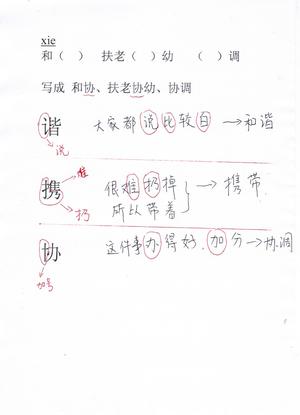 xie
和（ ） 扶老（ ）幼 （ ）调
写成 和协、扶老协幼、协调
谐 大家都说比较白 →和谐
说
携 难 很难扔掉 → 携带
扔 所以带着
协 这件事办得好.加分→协调
加号